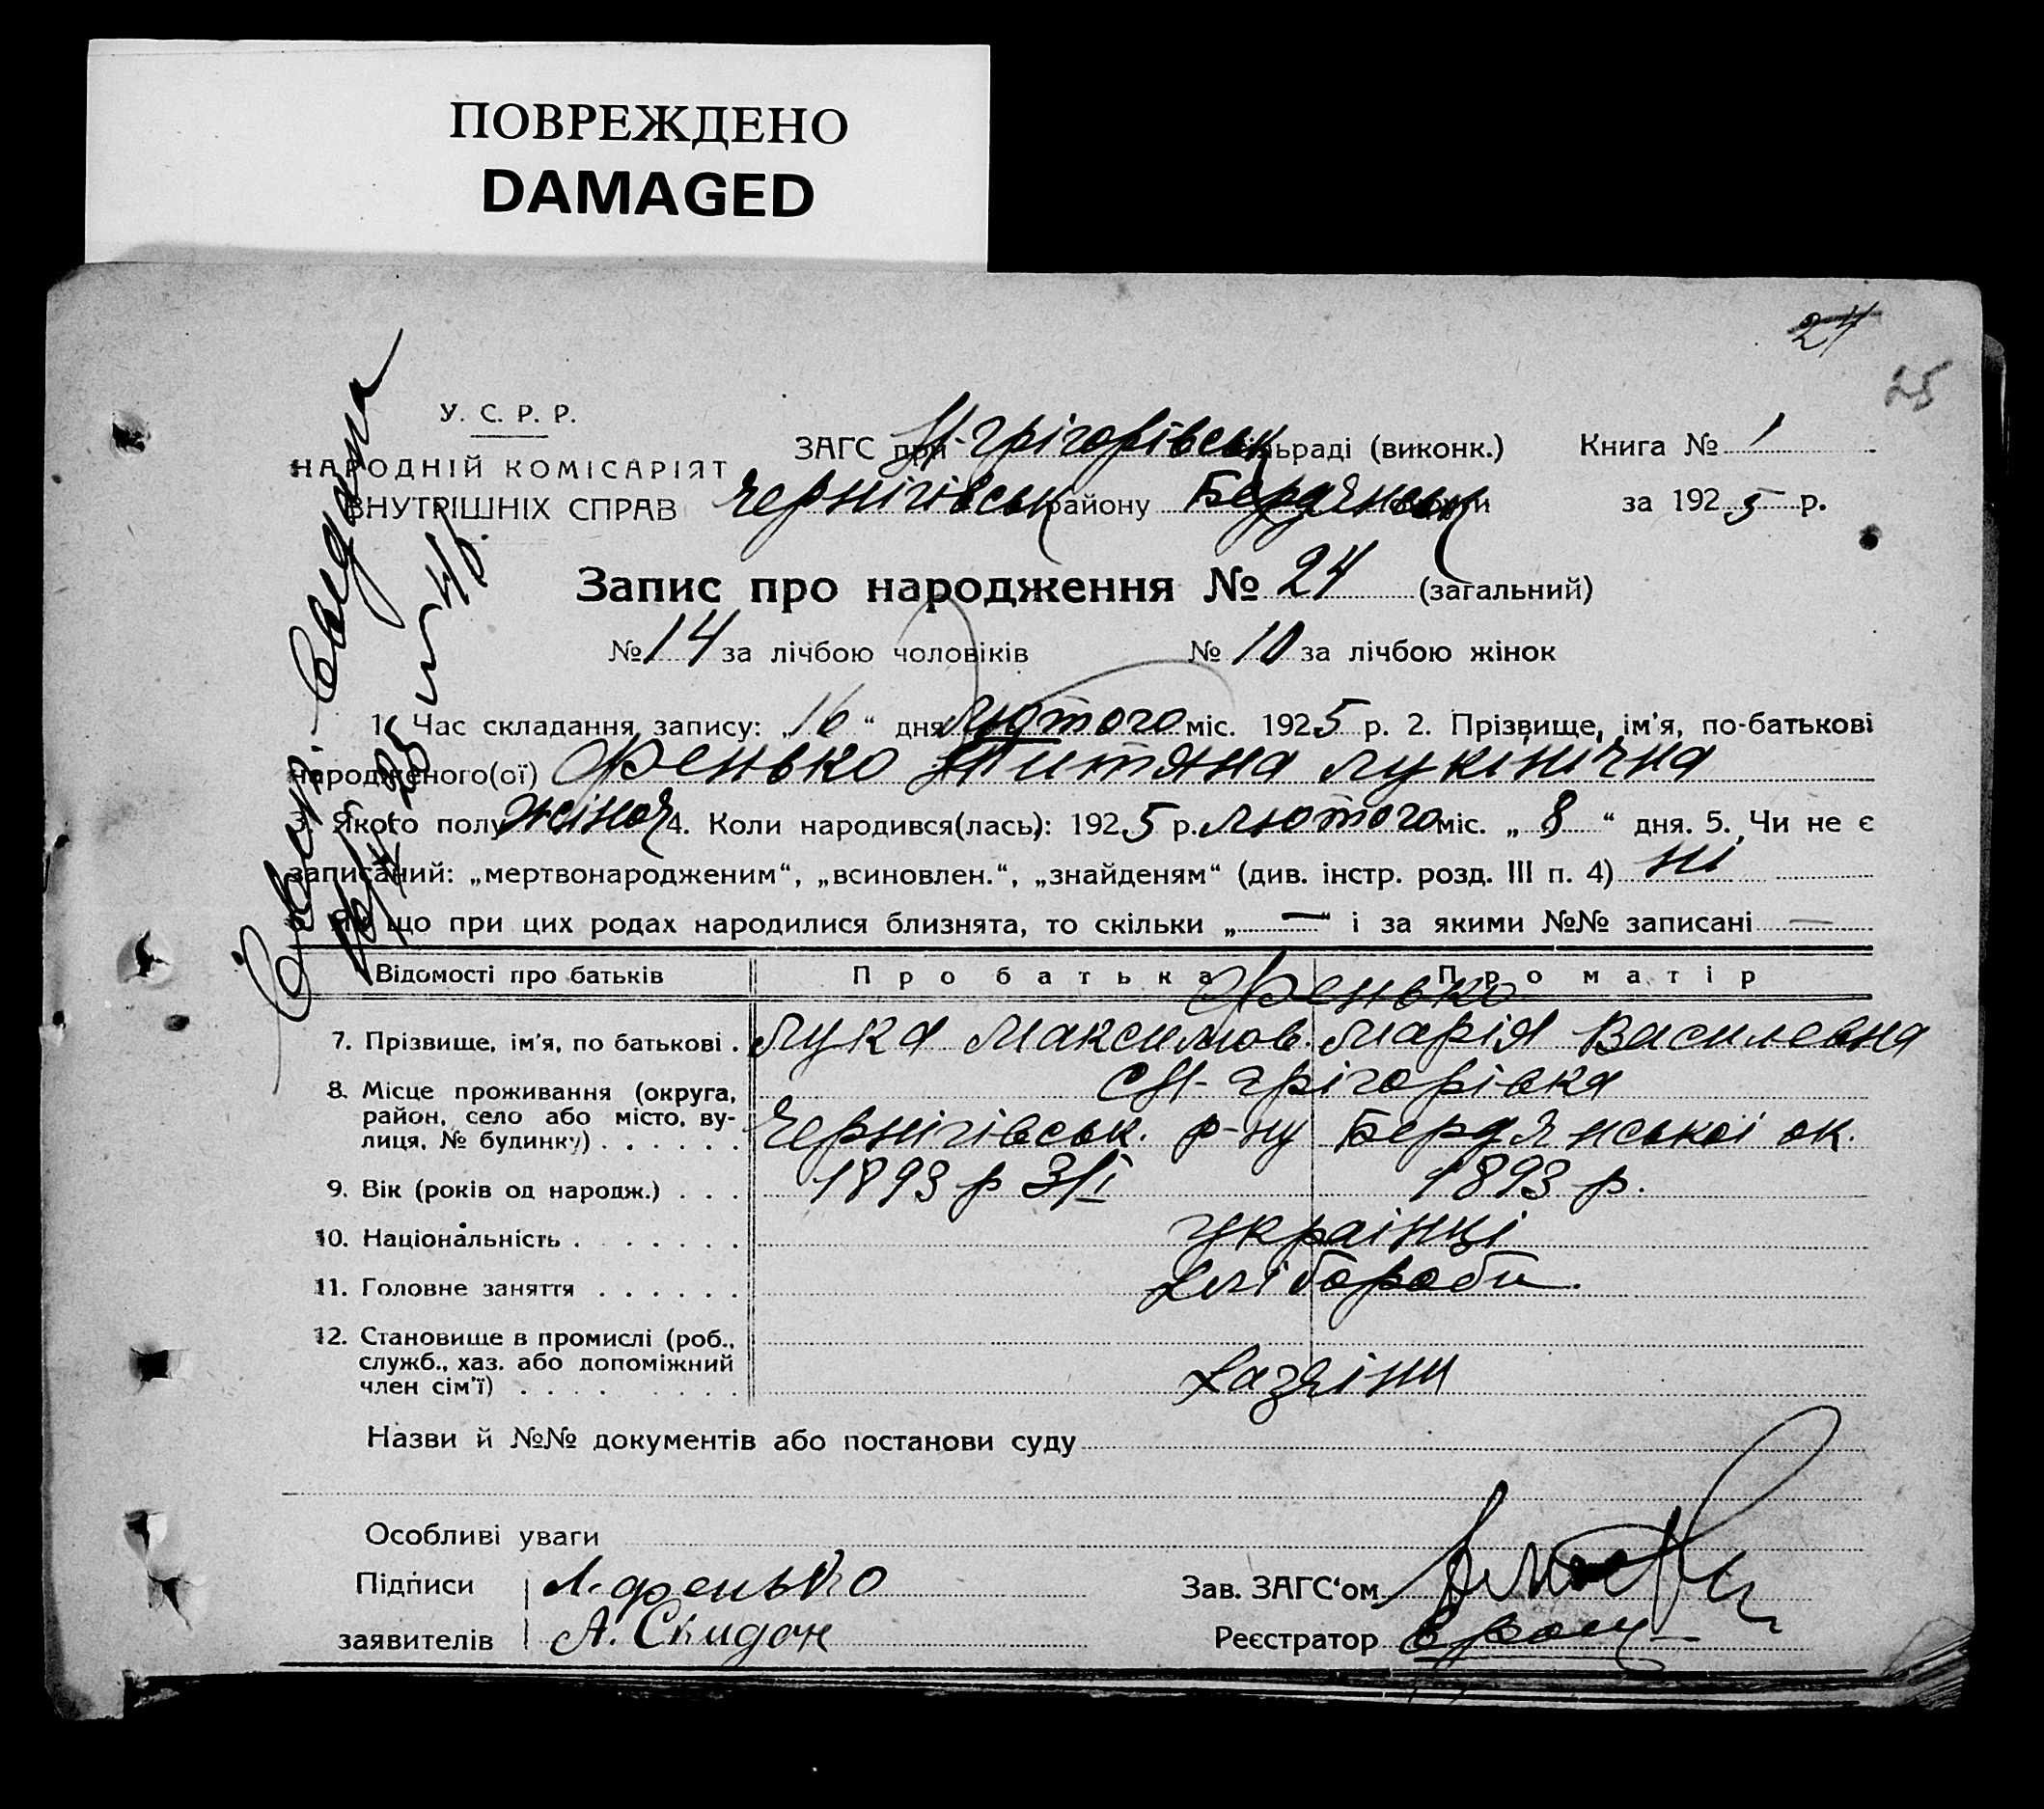 ПОВРЕЖДЕНО
DAMAGED
24
25
У. С. Р. Р.
НАРОДНІЙ КОМІСАРІЯТ
ВНУТРІШНІХ СПРАВ
ЗАГС при Н-Грігорівськ сільраді (виконк.) Книга № 1
Чернігівськ району Бердянськ округи за 1925 р.
Запис про народження № 24 (загальний)
№ 14 за лічбою чоловіків № 10 за лічбою жінок
1. Час складання запису: „16“ дня лютого міс. 1925 р. 2. Прізвище, ім'я, по-батькові
народженого(ої) Фенько Титяна Лукінічна
3. Якого полу жіноч 4. Коли народився(лась): 1925 р. лютого міс. „8“ дня. 5. Чи не є
записаний: „мертвонародженим“, „всиновлен.“, „знайденям“ (див. інстр. розд. III п. 4) ні
Якщо при цих родах народилися близнята, то скільки „—“ і за якими №№ записані —
Відомості про батьків Про батька Про матір
Фенько
7. Прізвище, ім'я, по батькові . Лука Максимов. Марія Василевна
8. Місце проживання (округа, район, село або місто, вулиця, № будинку) . . . . . .
Н-Грігорівка
Чернігівськ. р-ну Бердянської ок.
9. Вік (років од народж.) . . . 1893 р 3/I 1893 р.
10. Національність . . . . . . . українці
11. Головне заняття . . . . . . хлібороби.
12. Становище в промислі (роб., служб., хаз. або допоміжний член сім'ї) . . . . . . . .
хазяїни
Назви й №№ документів або постанови суду
Особливі уваги
Підписи Л. Фенько Зав. ЗАГС‘ом
заявителів А. Скидан Реєстратор